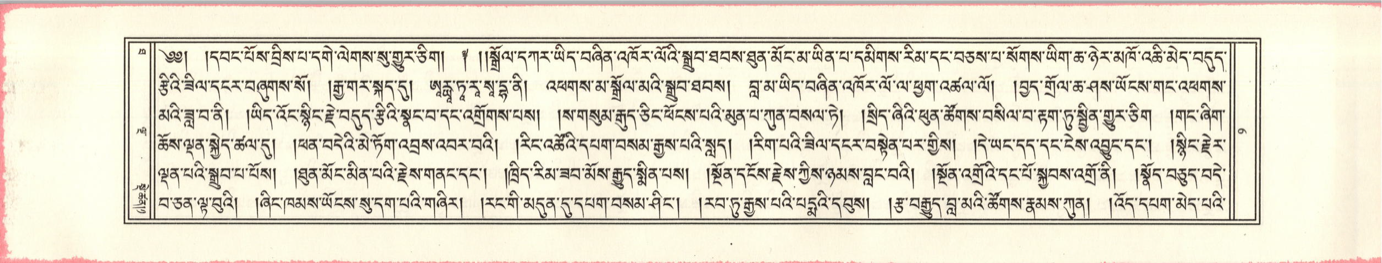 ༄༅། །དབང་པོས་བྲིས་པ་དགེ་ལེགས་སུ་གྱུར་ཅིག། ༈ །།སྒྲོལ་དཀར་ཡིད་བཞིན་འཁོར་ལོའི་སྒྲུབ་ཐབས་ཐུན་མོང་མ་ཡིན་པ་དམིགས་རིམ་དང་བཅས་པ་སོགས་ཡིག་ཆ་ཉེར་མཁོ་འཆི་མེད་བདུད་
རྩིའི་ཟིལ་དངར་བཞུགས་སོ། །རྒྱ་གར་སྐད་དུ། ཨཱརྻ་ཏཱ་རཱ་སཱ་དྷ་ནི། འཕགས་མ་སྒྲོལ་མའི་སྒྲུབ་ཐབས། བླ་མ་ཡིད་བཞིན་འཁོར་ལོ་ལ་ཕྱག་འཚལ་ལོ། །བྱད་གྲོལ་ཆ་ཤས་ཡོངས་གང་འཕགས་
མའི་ཟླ་བ་ནི། །ཡིད་འོང་སྙིང་རྗེ་བདུད་རྩིའི་སྣང་བ་དང་འགྲོགས་པས། །ས་གསུམ་རྒུད་ཅིང་ཕོངས་པའི་མུན་པ་ཀུན་བསལ་ཏེ། །སྲིད་ཞིའི་ཕུན་ཚོགས་བསིལ་བ་རྟག་ཏུ་སྦྱིན་གྱུར་ཅིག །གང་ཞིག་
ཆོས་ལྡན་སྐྱེད་ཚལ་དུ། །ཕན་བདེའི་མེ་ཏོག་འབྲས་འབར་བའི། །རིང་འཚོའི་དཔག་བསམ་རྒྱས་པའི་སླད། །རིག་པའི་ཟིལ་དངར་བསྟེན་པར་གྱིས། །དེ་ཡང་དད་དང་ངེས་འབྱུང་དང་། །སྙིང་རྗེར་
ལྡན་པའི་སྒྲུབ་པ་པོས། །ཐུན་མོང་མིན་པའི་རྗེས་གནང་དང་། །ཁྲིད་རིམ་ཟབ་མོས་རྒྱུད་སྨིན་པས། །སྔོན་དངོས་རྗེས་ཀྱིས་ཉམས་བླང་བའི། །སྔོན་འགྲོའི་དང་པོ་སྐྱབས་འགྲོ་ནི། །སྣོད་བཅུད་བདེ་
བ་ཅན་ལྟ་བུའི། །ཞིང་ཁམས་ཡོངས་སུ་དག་པའི་གཞིར། །རང་གི་མདུན་དུ་དཔག་བསམ་ཤིང་། །རབ་ཏུ་རྒྱས་པའི་པདྨའི་དབུས། །རྩ་བརྒྱུད་བླ་མའི་ཚོགས་རྣམས་ཀུན། །འོད་དཔག་མེད་པའི་